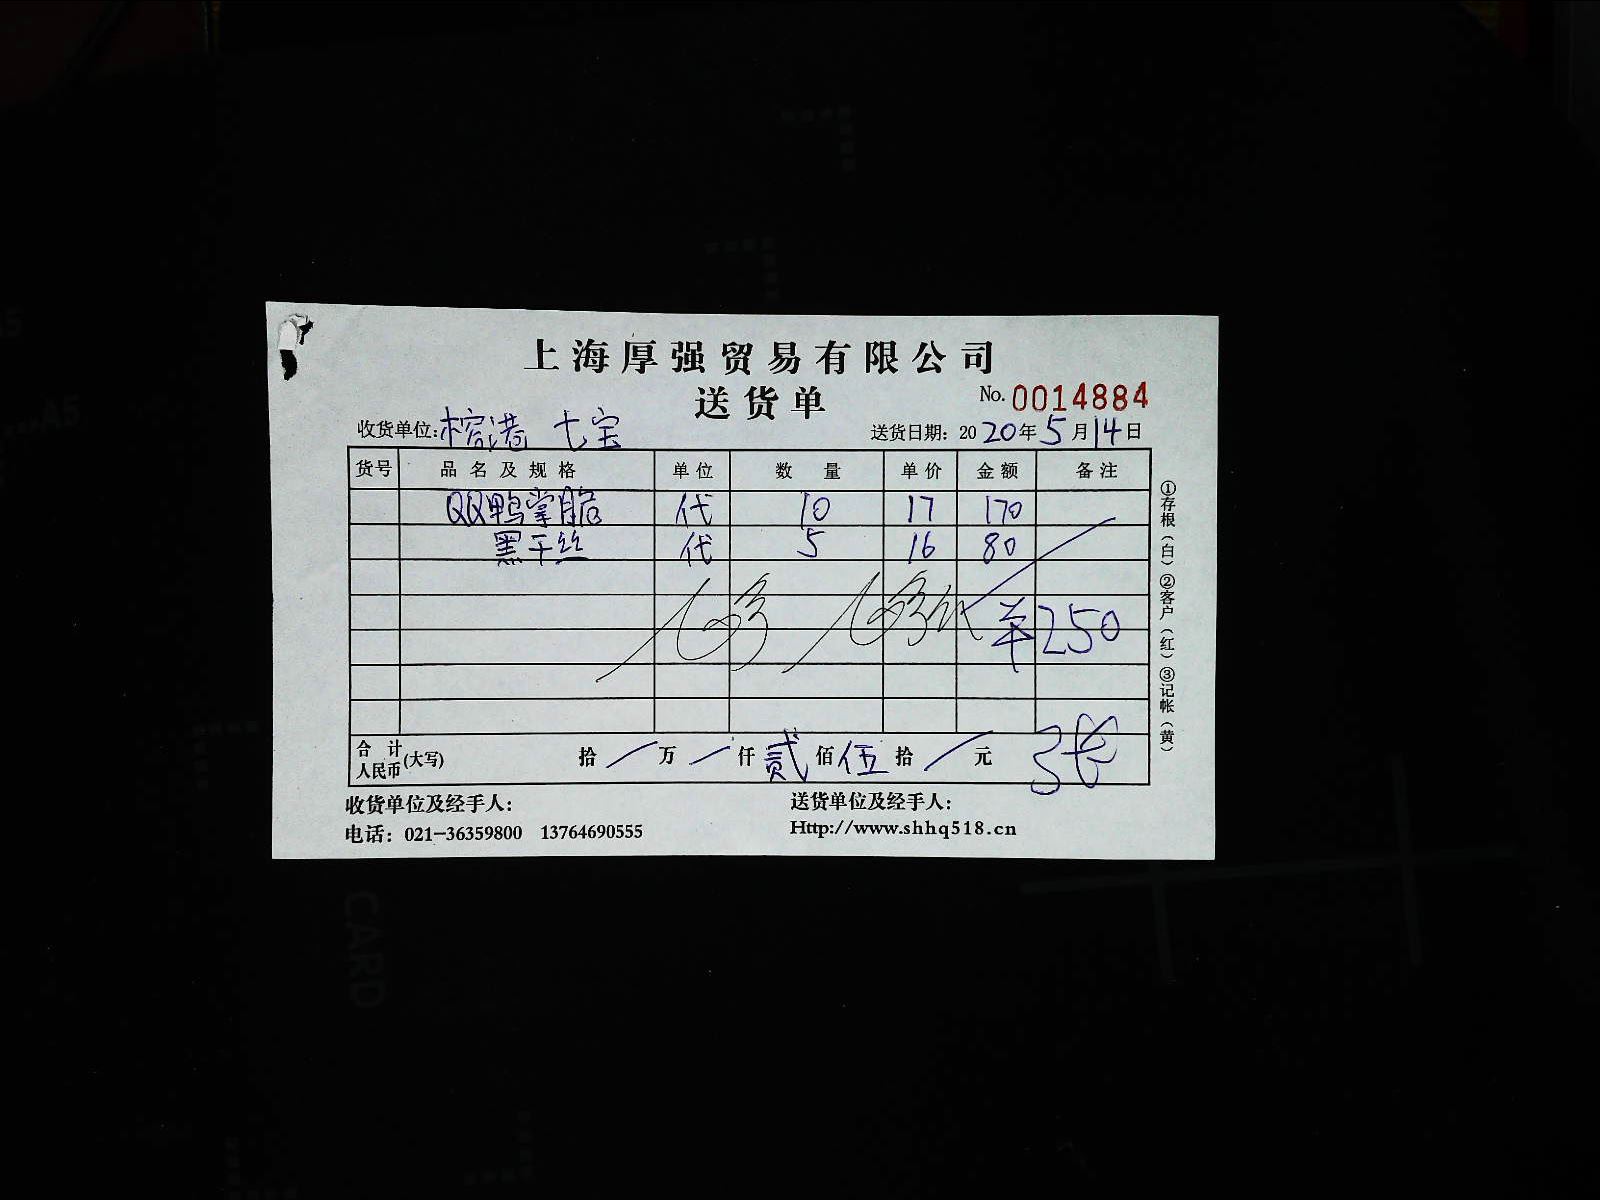 上海厚强贸易有限公司
送货单 No. 0014884
收货单位:榕港 七宝 送货日期: 2020年5月14日
货号 品名及规格 单位 数量 单价 金额 备注
QQ鸭掌脆 代 10 17 170
黑干丝 代 5 16 80
¥250
合计人民币(大写) 拾 / 万 / 仟 贰 佰 伍 拾 / 元
3张
收货单位及经手人: 送货单位及经手人:
电话: 021-36359800 13764690555 Http://www.shhq518.cn
①存根(白)②客户(红)③记帐(黄)